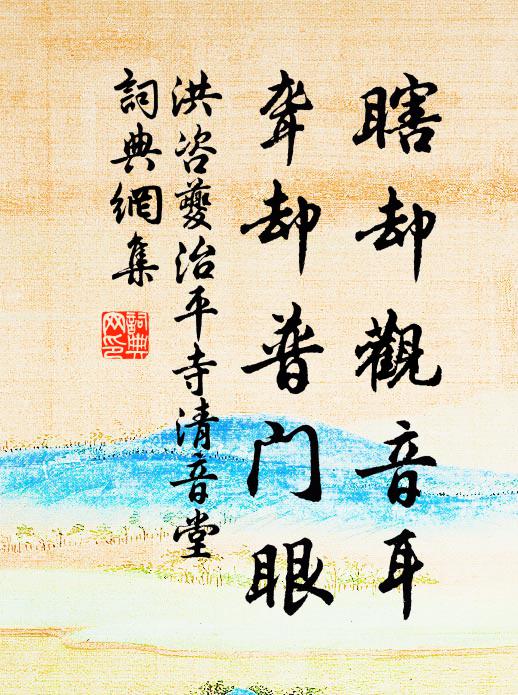 瞎却觀音耳
聋却普门眼
洪咨夔治平寺清音堂
詞典網集
詞典网印